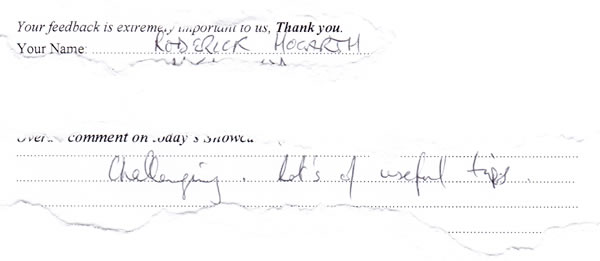 Your feedback is extremely important to us, Thank you.
Your Name: RODERICK HOGARTH
Overall comment on today's Showca
Challenging. Lot's of useful tips.